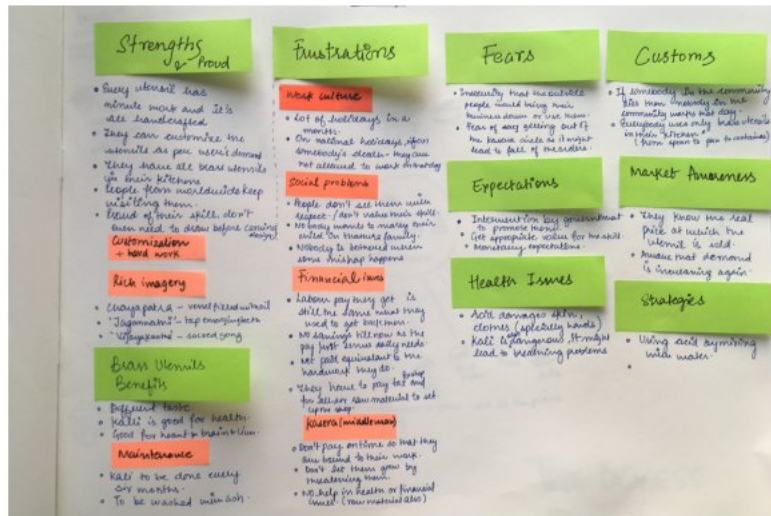 Strengths
& Proud
• Every utensil has
minute work and it's
all handcrafted
• They can customize the
utensils as per user's demand
• They have all brass utensils
in their kitchens
• People from worldwide keep
visiting them.
• Proud of their skill, don't
even need to draw before carving
design
Customization
+ hard work
Rich imagery
• "Jagannathi" -
Brass Utensils
Benefits
• Different taste
• Kalli is good for health.
• Good for heart
Maintenance
• Kali to be done every
six months.
• To be washed with ash.
Frustrations
Work culture
• Lot of holidays in a
month.
• On national holidays, upon
somebody's death - they are
not allowed to work on that day
Social problems
• People don't see them with
respect. / don't value their skill.
• Nobody wants to marry their
child in thatera family.
• Nobody is bothered when
some mishap happens
Financial issues
• Labour pay they get is
still the same what they
used to get back then.
• No savings till now as the
pay just serves daily needs.
• Not paid equivalent to the
hardwork they do.
• They have to pay tax and
for raw material to set
Kasera (middleman)
• Don't pay on time so that they
are bound to their work.
• Don't let them grow by
threatening them.
• No help in health or financial
issues. (raw material also)
Fears
• Insecurity that the outside
people would bring their
business down or use them.
• Fear of getting out of
the kasera circle as it might
lead to fall of the orders.
Expectations
• Intervention by government
to promote them.
• Get appropriate value for the skill.
• Monetary expectations.
Health Issues
• Acid damages skin,
clothes (specially hands)
• Kali is dangerous, It might
lead to breathing problems
Customs
• If somebody in the community
dies then nobody in the
community works that day.
• Everybody uses only brass utensils
in their kitchen
(from spoon to pan to containers)
Market Awareness
• They know the real
price at which the
utensil is sold.
• Aware that demand
is increasing again.
Strategies
• Using acid by mixing
with water.